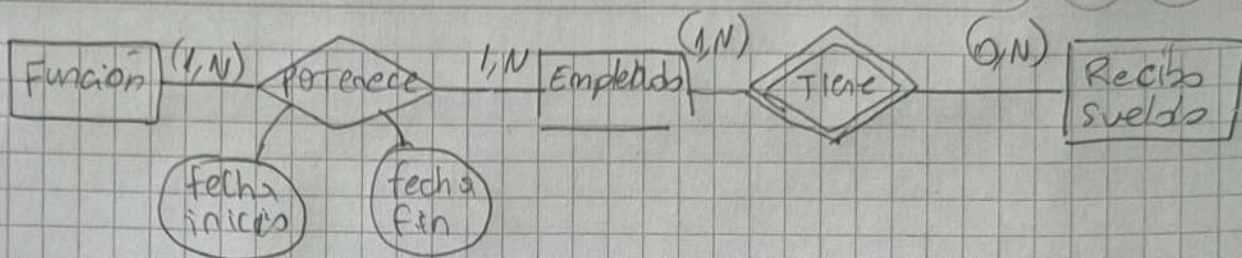 Función
(1,N)
Pertenece
1,N
Empleado
(1,N)
Tiene
(0,N)
Recibo
sueldo
fecha
inicio
fecha
fin